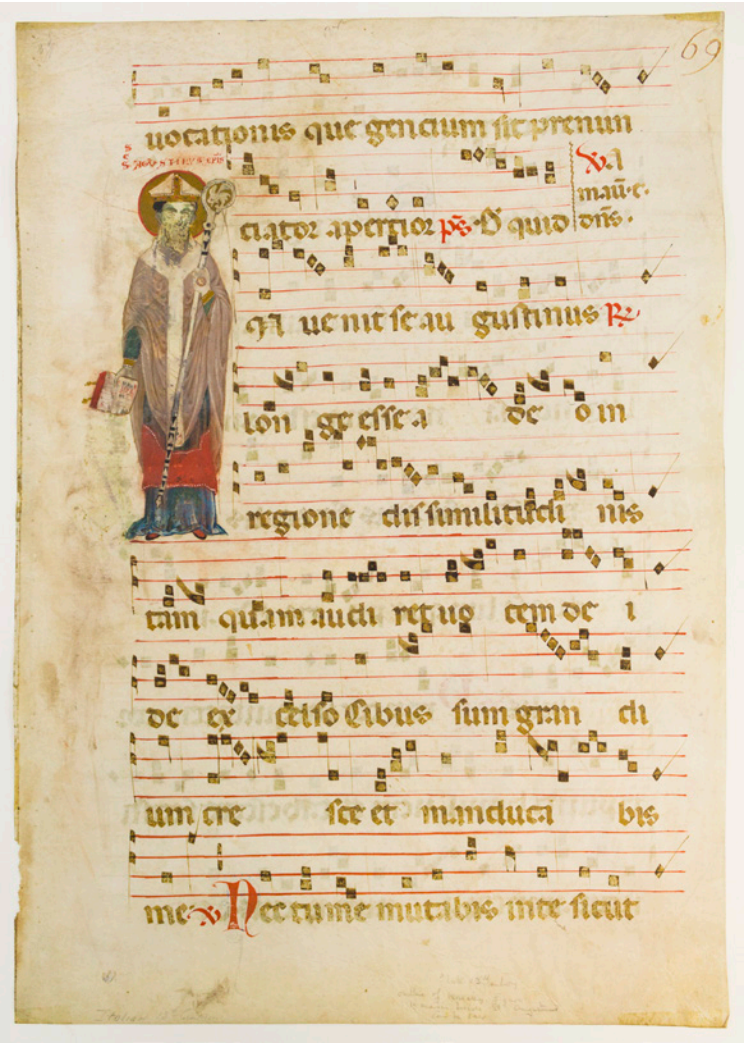 69
uocationis que gencium sic prenun
S. AUGUSTINUS
ciator apertior ps̄ D̄ quid
℣. A
mau. e.
dn̄s.
In uenit se au gustinus ℟
lon ge esse a de o in
regione dis similitudi nis
tam quam audi ret uo cem de i
de ex celso Cibus sum gran di
um cre sce et manduca bis
me ℣ Nec tu me mutabis in te sicut